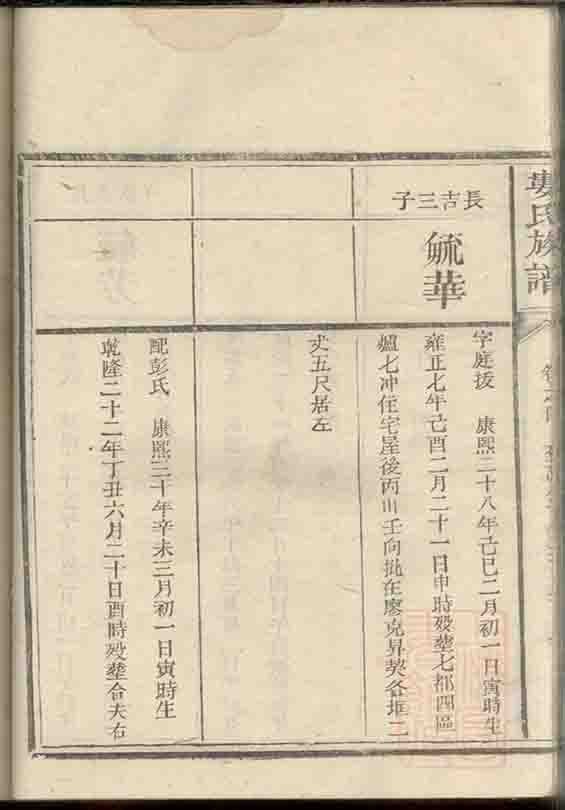 婁氏族譜
長吉三子
毓華
字庭援　康熙二十八年己巳二月初一日寅時生
雍正七年己酉二月二十一日申時殁塟七都四區
爐七冲住宅屋後丙山壬向批在廖克昇契各堆二
丈五尺居左
配彭氏　康熙三十年辛未三月初一日寅時生
乾隆二十二年丁丑六月二十日酉時殁塟合夫右